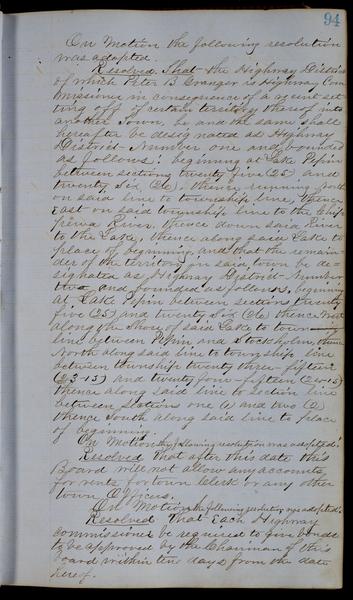 94
On Motion the following resolution
was adopted.
Resolved That the Highway District
of which Peter B Granger is Highway Com
missioner in consequence of a recent set
ting off of certain territory thereof into
another Town, be and the same shall
hereafter be designated as Highway
District Number one and bounded
as follows: begining at Lake Pepin
between sections twenty five (25) and
twenty Six (26), thence running North
on said line to township line, thence
East on said township line to the Chip
pewa River, thence down said River
to the Lake, thence along said Lake to
place of beginning, and that the remain
der of the territory in said town be de
signated as Highway District Number
two and bounded as follows, begining
at Lake Pepin between sections twenty
five (25) and twenty Six (26) thence West
along the Shore of said Lake to town
line between Pepin and Stockholm, thence
North along said line to township line
between township twenty three-fifteen
(23-15) and twenty four-fifteen (24-15)
thence along said line to section line
between sections one (1) and two (2)
thence South along said line to place
of beginning.
On Motion the following resolution was adopted:
Resolved That after this date this
Board will not allow any accounts
for rents for town Clerk or any other
town Officers.
On Motion the following resolution was adopted.
Resolved That Each Highway
commissioner be required to give bonds
to be approved by the Chairman of this
board within ten days from the date
hereof.